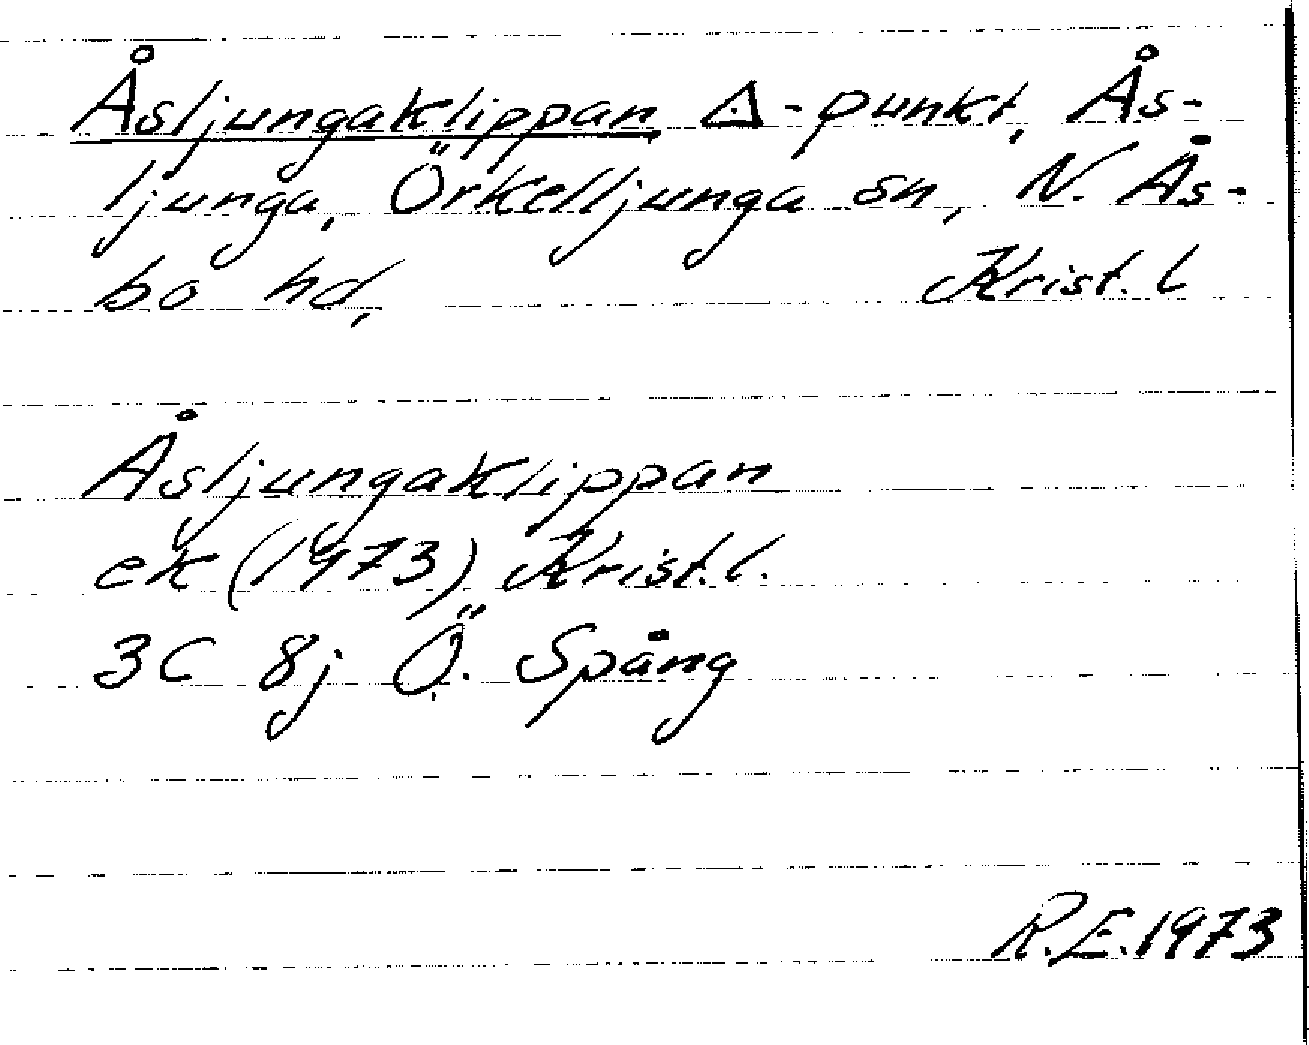 Åsljungaklippan, △-punkt, Ås-
ljunga, Örkelljunga sn, N. Ås-
bo hd, Krist. l
Åsljungaklippan
ek (1973) Krist. l.
3C 8j Ö. Spång
R.E. 1973